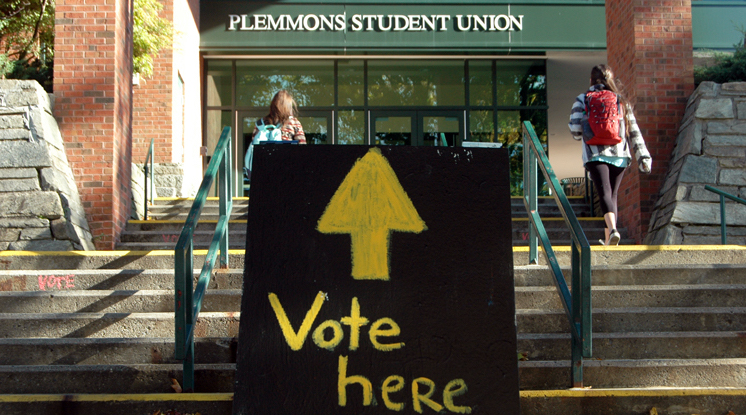 PLEMMONS STUDENT UNION
VOTE
Vote
here